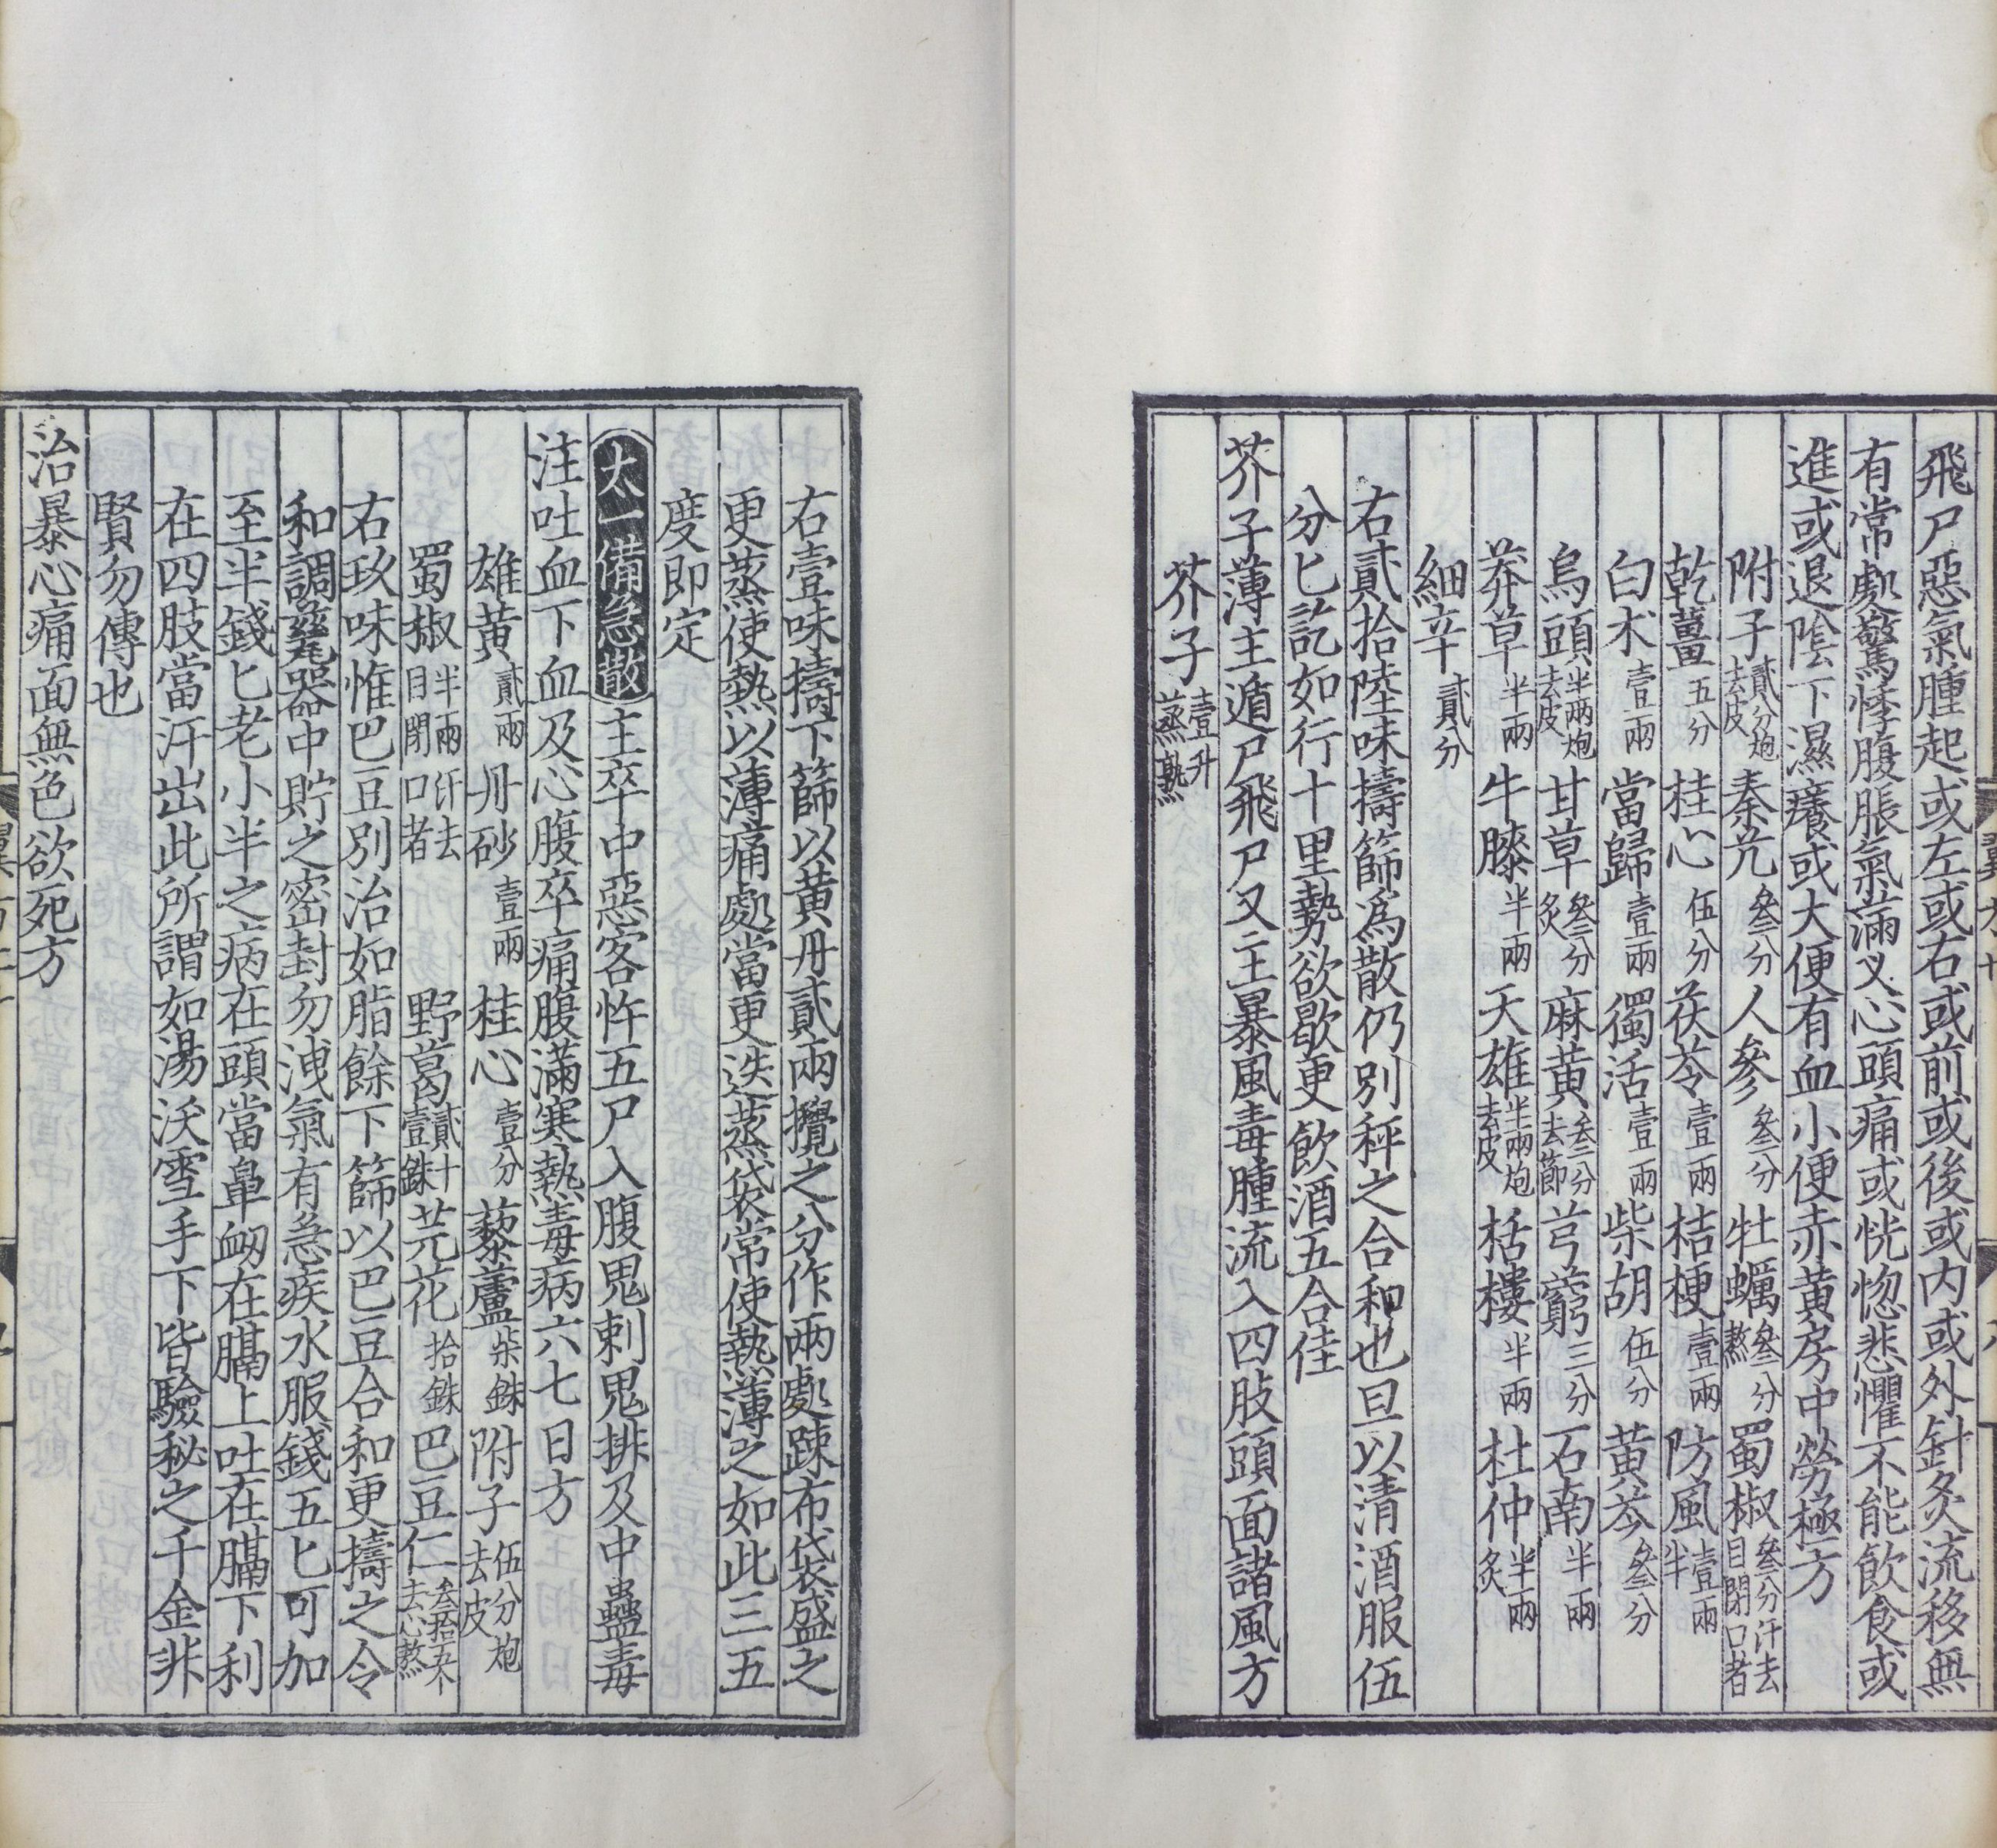 飛尸惡氣腫起或左或右或前或後或内或外針灸流移無
有常處驚悸腹脹氣滿又心頭痛或恍惚悲懼不能飲食或
進或退陰下濕癢或大便有血小便赤黄房中勞極方
附子貳分炮去皮 秦艽叄分 人參叄分 牡蠣叄分熬 蜀椒叄分汗去目閉口者
乾薑五分 桂心伍分 茯苓壹兩 桔梗壹兩 防風壹兩半
白朮壹兩 當歸壹兩 獨活壹兩 柴胡伍分 黄芩叄分
烏頭半兩炮去皮 甘草叄分炙 麻黄叄分去節 芎藭三分 石南半兩
莽草半兩 牛膝半兩 天雄半兩炮去皮 栝樓半兩 杜仲半兩炙
細辛貳分
右貳拾陸味擣篩爲散仍別秤之合和也旦以清酒服伍
分匕訖如行十里勢欲歇更飲酒五合佳
芥子薄主遁尸飛尸又主暴風毒腫流入四肢頭面諸風方
芥子壹升蒸熟
右壹味擣下篩以黄丹貳兩攪之分作兩處踈布袋盛之
更蒸使熱以薄痛處當更迭蒸袋常使熱薄之如此三五
度即定
太一備急散主卒中惡客忤五尸入腹鬼刺鬼排及中蠱毒
注吐血下血及心腹卒痛腹滿寒熱毒病六七日方
雄黄貳兩 丹砂壹兩 桂心壹分 藜蘆柒銖 附子伍分炮去皮
蜀椒半兩汗去目閉口者 野葛貳十壹銖 芫花拾銖 巴豆仁叄拾五本去心熬
右玖味惟巴豆別治如脂餘下篩以巴豆合和更擣之令
和調甆器中貯之密封勿洩氣有急疾水服錢五匕可加
至半錢匕老小半之病在頭當鼻衂在膈上吐在膈下利
在四肢當汗出此所謂如湯沃雪手下皆驗秘之千金非
賢勿傳也
治暴心痛面無色欲死方